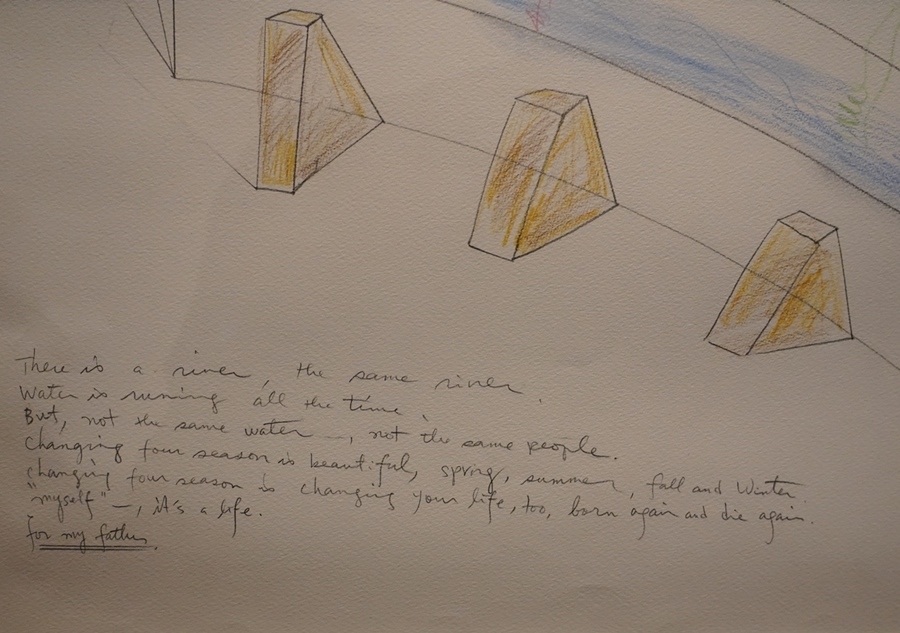 There is a river, the same river.
Water is running all the time.
But, not the same water —, not the same people.
Changing four season is beautiful, spring, summer, fall and Winter.
changing four season is changing your life, too, born again and die again.
"myself" —, it's a life.
for my father.